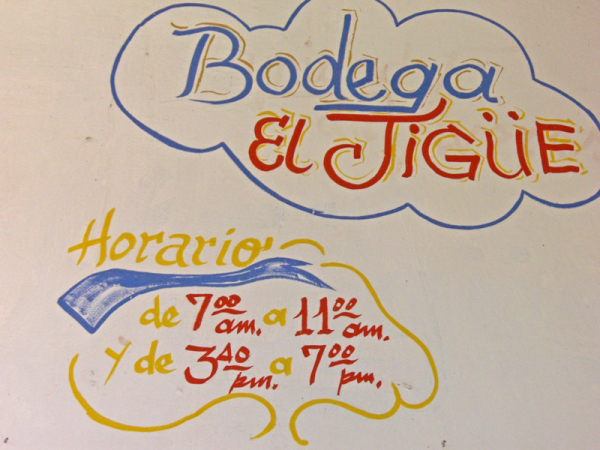 Bodega
El JIGÜE
Horario
de 7:00 am. a 11:00 am.
y de 3:40 pm. a 7:00 pm.